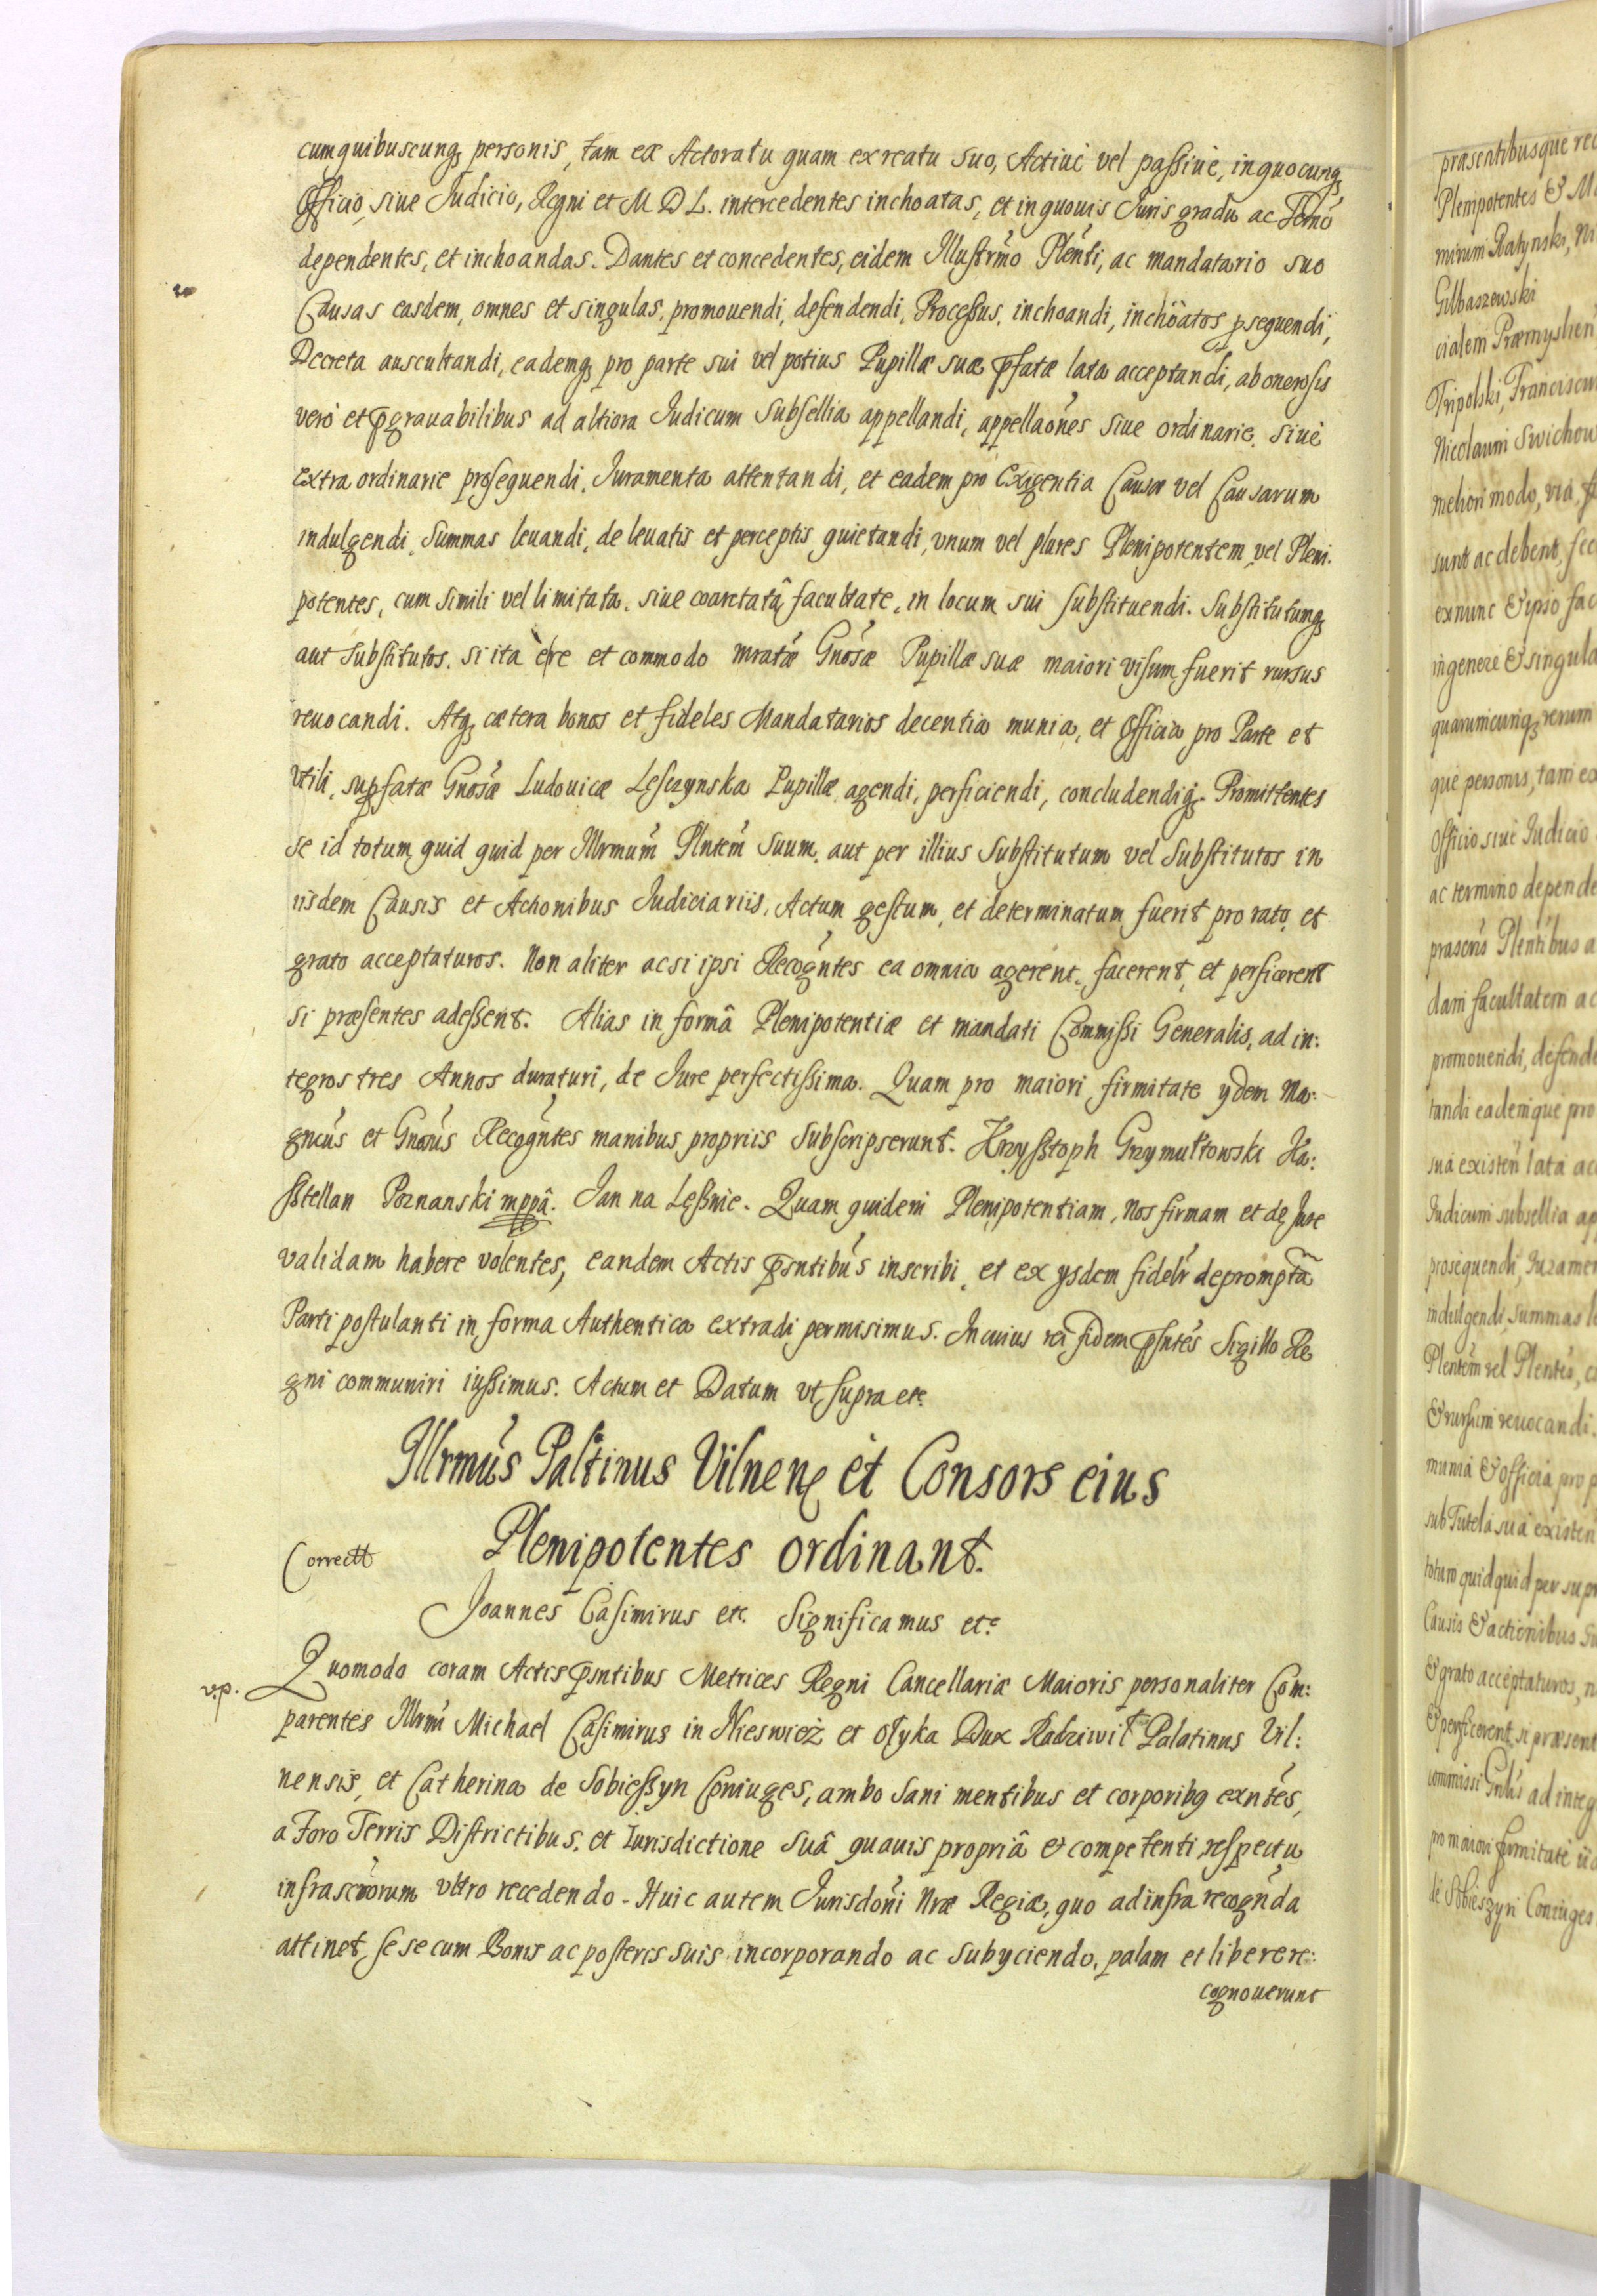 cum quibuscunq; personis, tam ex Actoratu quam ex reatu suo, Actiuè vel passiuè, in quocunq;
Officio, siue Iudicio, Regni et M D L. intercedentes inchoatas, et in quouis Iuris gradu ac Termo
dependentes, et inchoandas. Dantes et concedentes, eidem Illustrmo Plenti, ac mandatario suo
Causas easdem, omnes et singulas, promouendi, defendendi, Processus, inchoandi, inchoatos psequendi,
Decreta auscultandi, eademq; pro parte sui vel potius Pupillæ suæ pfatæ lata acceptandi, ab onerosis
verò et pgrauabilibus ad altiora Iudicum Subsellia appellandi, appellaones siue ordinarie, siuè
extra ordinarie prosequendi, Iuramenta attentandi, et eadem pro exigentia Causæ vel Causarum
indulgendi, Summas leuandi, de leuatis et perceptis quietandi, vnum vel plures Plenipotentem, vel Pleni.
potentes, cum simili vel limitata, siue coarctatâ facultate, in locum sui substituendi. Substitutumq;
aut Substitutos, si ita è re et commodo mratæ Gnosæ Pupillæ suæ maiori visum fuerit rursus
reuocandi. Atq; cætera bonos et fideles Mandatarios decentia munia, et Officia pro Parte et
vtili, supfatæ Gnosæ Ludouicæ Lesczynska Pupillæ, agendi, perficiendi, concludendiq;. Promittentes
se id totum quid quid per Illrmum Plntem Suum, aut per illius Substitutum vel Substitutos in
iisdem Causis et Actionibus Iudiciariis, Actum gestum, et determinatum fuerit pro rato, et
grato acceptaturos. Non aliter ac si ipsi Recogntes ea omnia agerent, facerent, et perficerent
si præsentes adessent. Alias in formâ Plenipotentiæ et mandati Commissi Generalis, ad in:
tegros tres Annos duraturi, de Iure perfectissima. Quam pro maiori firmitate ydem Ma:
gncus et Gnosus Recogntes manibus propriis Subscripserunt. Krzysstoph Grzymułtowski Ka:
sstellan Poznanski mppâ. Jan na Lessnie. Quam quidem Plenipotentiam, Nos firmam et de Iure
validam habere volentes, eandem Actis pntibus inscribi, et ex ysdem fidelr depromptã
Parti postulanti in forma Authentica extradi permisimus. In cuius rei fidem pntes Sigillo Re
gni communiri iussimus. Actum et Datum vt supra etc.
Illrmus Paltinus Vilnen et Consors eius
Plenipotentes ordinant.
Correctt
Joannes Casimirus etc. Significamus etc.
v.p.
Quomodo coram Actis pntibus Metrices Regni Cancellariæ Maioris personaliter Com:
parentes Illrmi Michael Casimirus in Nieswież et Ołyka Dux Radziwił Palatinus Vil:
nensis, et Catherina de Sobiessyn Coniuges, ambo sani mentibus et corporibq exntes,
a Foro Terris Districtibus, et Iurisdictione Suâ quauis propriâ et competenti respectu
infrascrorum vltro recedendo. Huic autem Iurisdoni Nræ Regiæ, quo ad infra recognda
attinet, sese cum Bonis ac posteris suis incorporando ac subyciendo, palam et libere re:
cognouerunt
præsentibusque
Plenipotentes &
mirum Ratynski,
Gilbaszewski
cialem Præmyslien
Tripolski, Franciscum
Nicolaum Swichow
meliori modo, via,
sunt ac debent,
ex nunc & ipso
in genere & singula
quarumcunq; rerum
que personis, tam ex
Officio siuè Iudicio
ac termino depende
Plentibus a
dam facultatem ac
promouendi, defende
tandi eademque pro
suâ existen lata
Iudicum subsellia ap
prosequendi, Iuramen
indulgendi, summas
Plentem vel Plentes,
& rursum reuocandi.
munia & officia pro
sub Tutela suâ existen
totum quidquid per
Causis & actionibus
& grato acceptaturos,
& perficerent, si præsent
commissi Gnlis ad integ
pro maiori firmitate
de Sobieszyn Coniuges